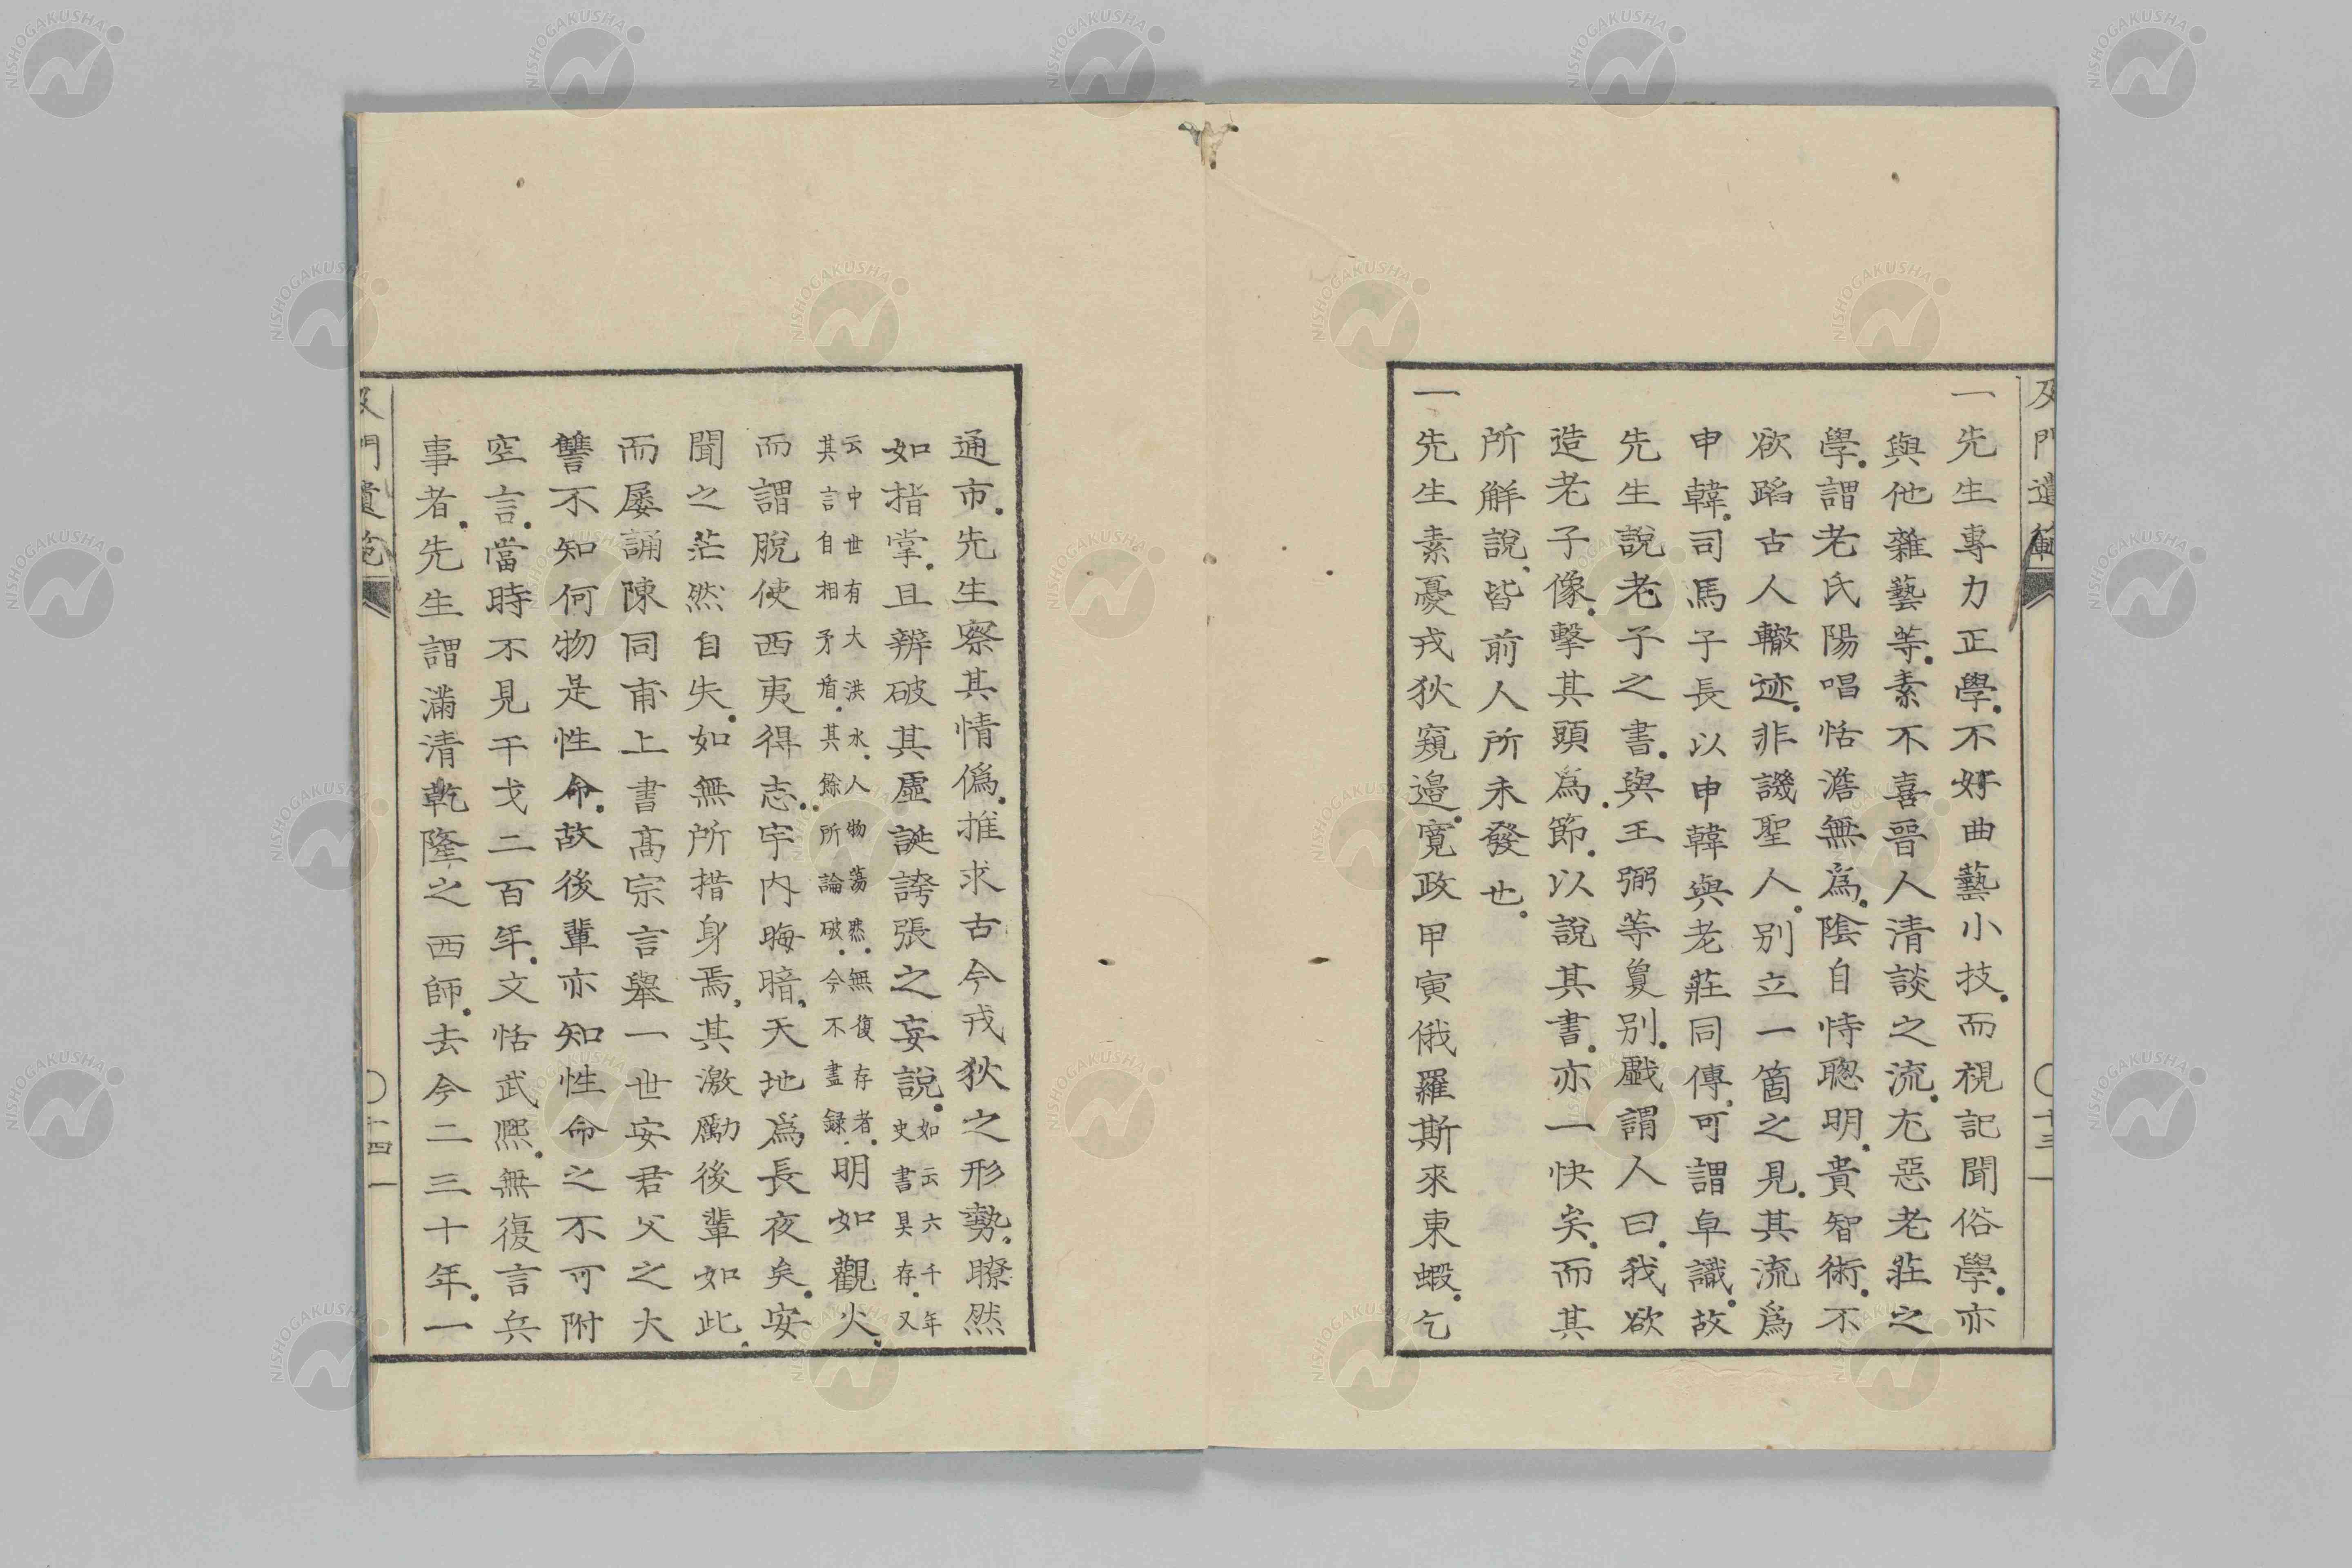 及門遺範
十三
一先生專力正學。不好曲藝小技。而視記聞俗學。亦
與他雜藝等。素不喜晉人清談之流。尤惡老莊之
學。謂老氏陽唱恬澹無爲。陰自恃聰明。貴智術。不
欲蹈古人轍迹。非譏聖人。別立一箇之見。其流爲
申韓。司馬子長以申韓與老莊同傳。可謂卓識。故
先生說老子之書。與王弼等敻別。戲謂人曰。我欲
造老子像。擊其頭爲節。以說其書。亦一快矣。而其
所解說。皆前人所未發也。
一先生素憂戎狄窺邊。寬政甲寅俄羅斯來東蝦。乞
通市。先生察其情僞。推求古今戎狄之形勢。瞭然
如指掌。且辨破其虛誕誇張之妄說。如云六千年史書具存。又
云中世有大洪水。人物蕩然。無復存者。其言自相矛盾。其餘所論破。今不盡録。明如觀火。
而謂脫使西夷得志。宇内晦暗。天地爲長夜矣。安
聞之茫然自失。如無所措身焉。其激勵後輩如此。
而屡誦陳同甫上書高宗言舉一世安君父之大
讐不知何物是性命。故後輩亦知性命之不可附
空言。當時不見干戈二百年。文恬武熙。無復言兵
事者。先生謂滿清乾隆之西師。去今二三十年。一
及門遺範
十四
NISHOGAKUSHA